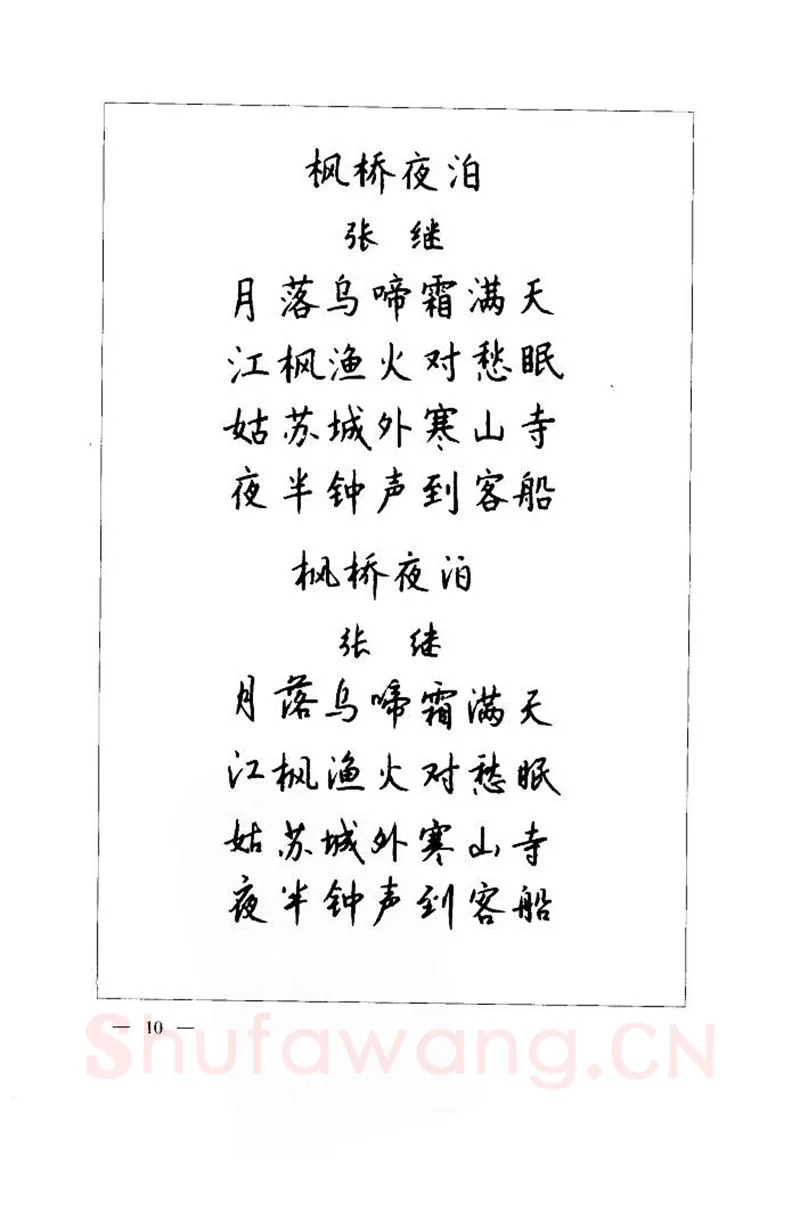 枫桥夜泊
张 继
月落乌啼霜满天
江枫渔火对愁眠
姑苏城外寒山寺
夜半钟声到客船
枫桥夜泊
张 继
月落乌啼霜满天
江枫渔火对愁眠
姑苏城外寒山寺
夜半钟声到客船
— 10 —
Shufawang.CN